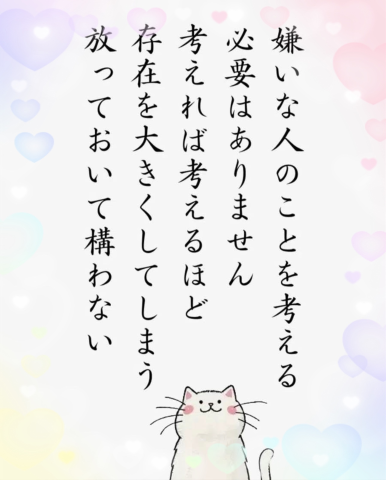 嫌いな人のことを考える
必要はありません
考えれば考えるほど
存在を大きくしてしまう
放っておいて構わない